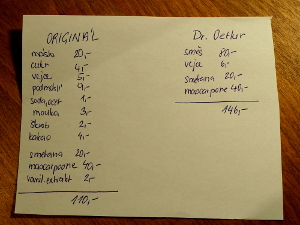 ORIGINÁL
máslo 20,-
cukr 4,-
vejce 5,-
podmáslí 9,-
soda, ocet 1,-
mouka 3,-
škrob 2,-
kakao 4,-
smetana 20,-
mascarpone 40,-
vanil. extrakt 2,-
110,-
Dr. Oetker
směs 80,-
vejce 6,-
smetana 20,-
mascarpone 40,-
146,-